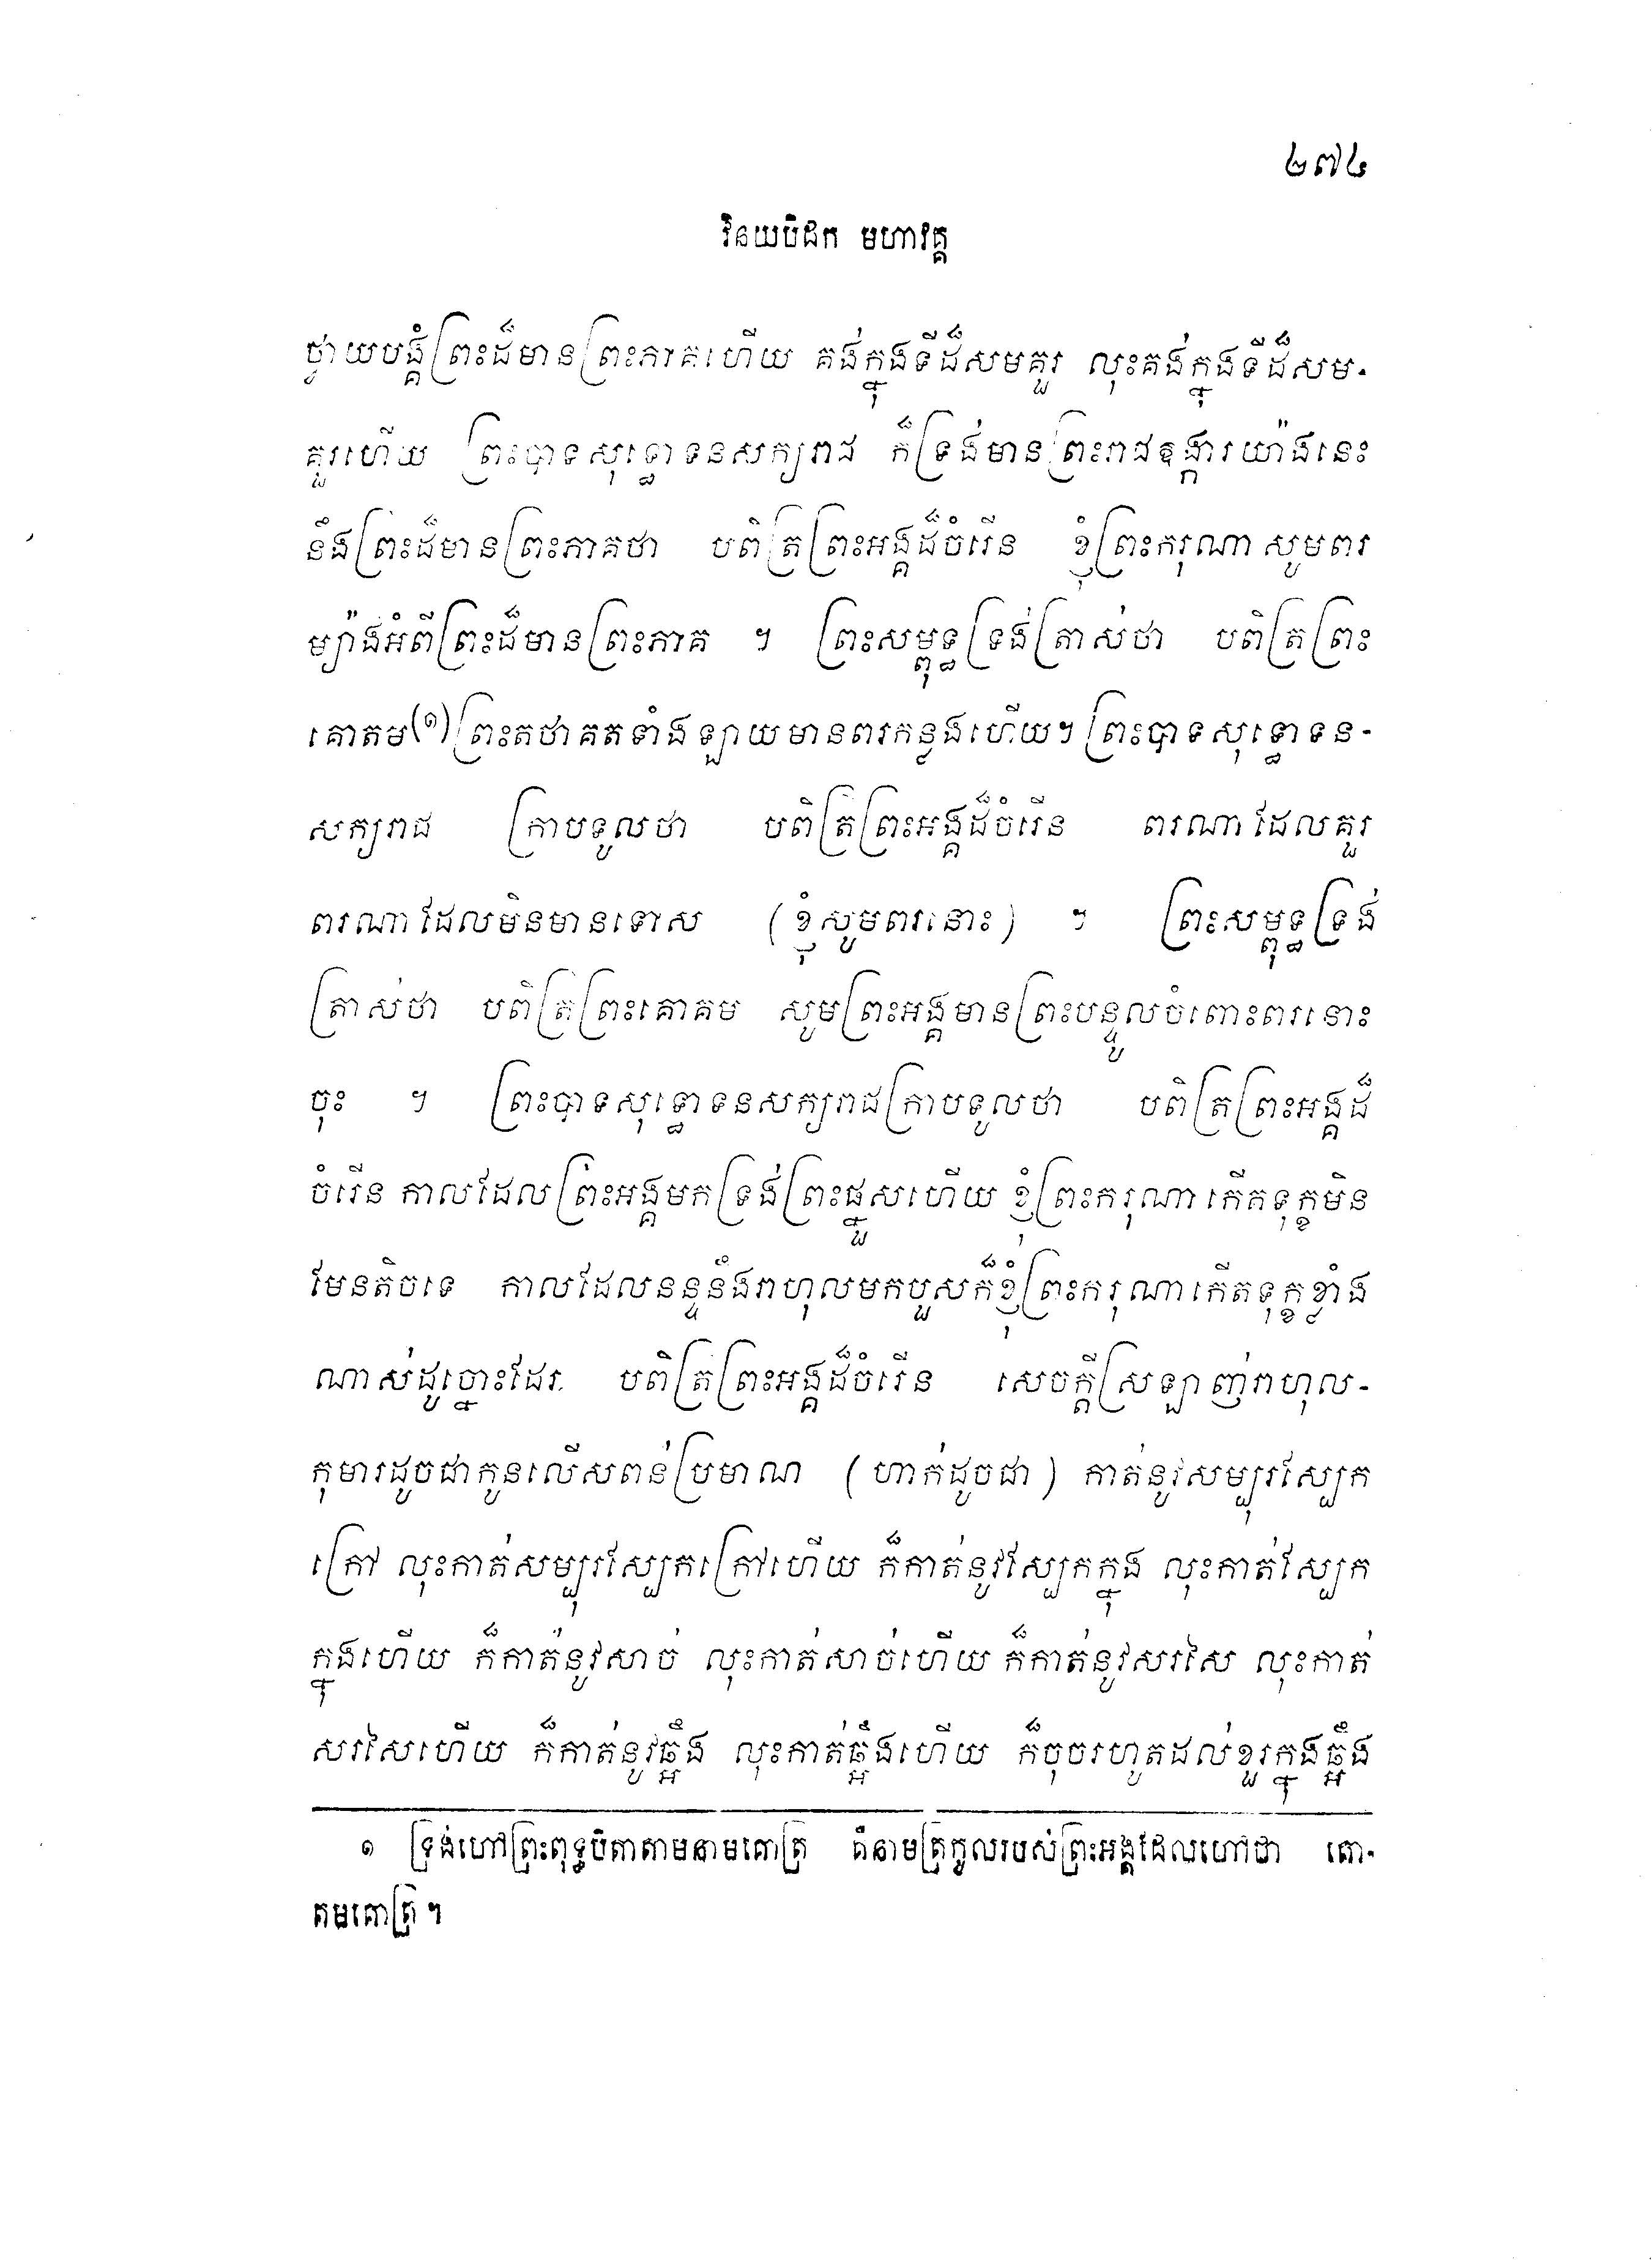 ២៧៤
វិនយបិដក មហាវគ្គ
ថ្វាយបង្គំព្រះដ៏មានព្រះភាគហើយ គង់ក្នុងទីដ៏សមគួរ លុះគង់ក្នុងទីដ៏សម-
គួរហើយ ព្រះបាទសុទ្ធោទនសក្យរាជ ក៏ទ្រង់មានព្រះរាជឱង្ការយ៉ាងនេះ
នឹងព្រះដ៏មានព្រះភាគថា បពិត្រព្រះអង្គដ៏ចំរើន ខ្ញុំព្រះករុណាសូមពរ
ម្យ៉ាងអំពីព្រះដ៏មានព្រះភាគ ។ ព្រះសម្ពុទ្ធទ្រង់ត្រាស់ថា បពិត្រព្រះ
គោតម(១)ព្រះតថាគតទាំងឡាយមានពរកន្លងហើយ។ ព្រះបាទសុទ្ធោទន-
សក្យរាជ ក្រាបទូលថា បពិត្រព្រះអង្គដ៏ចំរើន ពរណាដែលគួរ
ពរណាដែលមិនមានទោស (ខ្ញុំសូមពរនោះ) ។ ព្រះសម្ពុទ្ធទ្រង់
ត្រាស់ថា បពិត្រព្រះគោតម សូមព្រះអង្គមានព្រះបន្ទូលចំពោះពរនោះ
ចុះ ។ ព្រះបាទសុទ្ធោទនសក្យរាជក្រាបទូលថា បពិត្រព្រះអង្គដ៏
ចំរើន កាលដែលព្រះអង្គមកទ្រង់ព្រះផ្នួសហើយ ខ្ញុំព្រះករុណាកើតទុក្ខមិន
មែនតិចទេ កាលដែលនន្ទនឹងរាហុលមកបួសក៏ខ្ញុំព្រះករុណាកើតទុក្ខខ្លាំង
ណាស់ដូច្នោះដែរ បពិត្រព្រះអង្គដ៏ចំរើន សេចក្តីស្រឡាញ់រាហុល-
កុមារដូចជាកូនលើសពន់ប្រមាណ (ហាក់ដូចជា) កាត់នូវសម្បុរស្បែក
ក្រៅ លុះកាត់សម្បុរស្បែកក្រៅហើយ ក៏កាត់នូវស្បែកក្នុង លុះកាត់ស្បែក
ក្នុងហើយ ក៏កាត់នូវសាច់ លុះកាត់សាច់ហើយ ក៏កាត់នូវសរសៃ លុះកាត់
សរសៃហើយ ក៏កាត់នូវឆ្អឹង លុះកាត់ឆ្អឹងហើយ ក៏ចុចរហូតដល់ខួរក្នុងឆ្អឹង
១ ទ្រង់ហៅព្រះពុទ្ធបិតាតាមនាមគោត្រ គឺនាមត្រកូលរបស់ព្រះអង្គដែលហៅថា គោ-
តមគោត្រ។